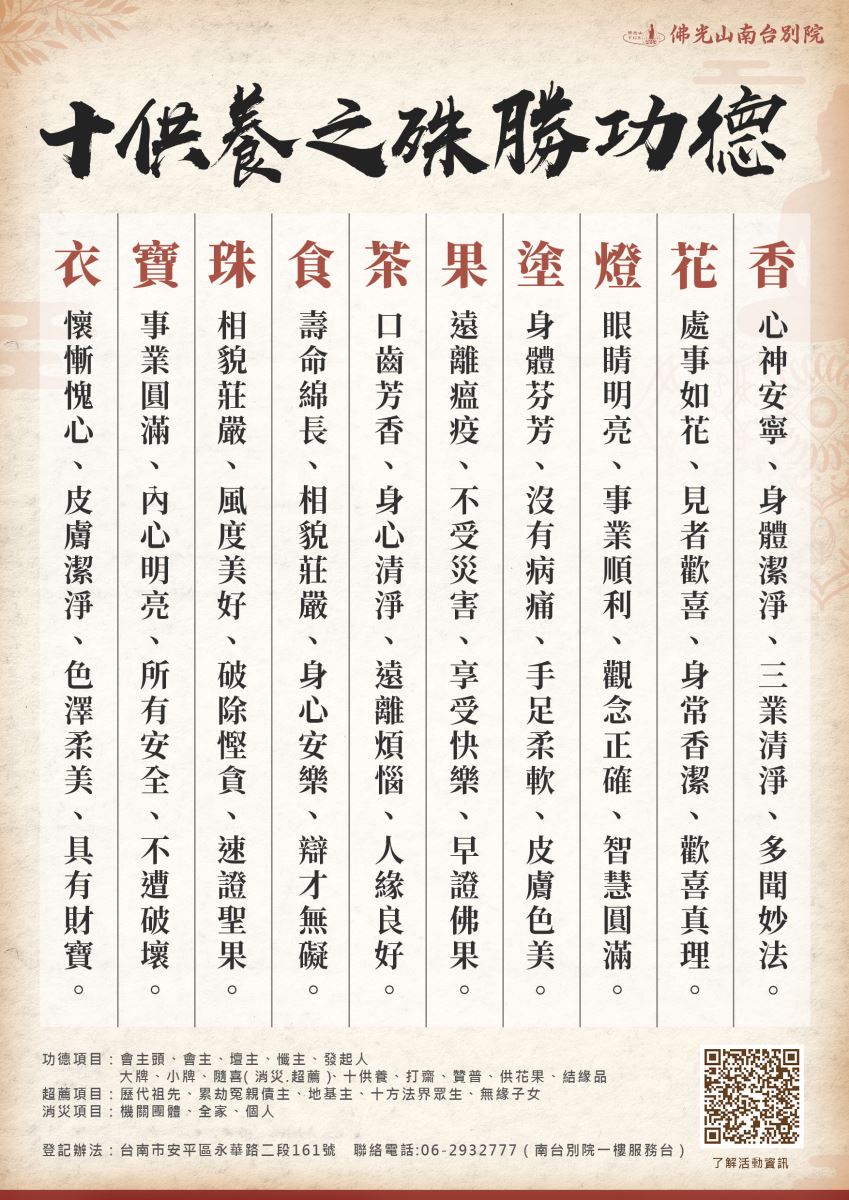 佛光山南台別院
十供養之硃勝功德
香
心神安寧、身體潔淨、三業清淨、多聞妙法。
花
處事如花、見者歡喜、身常香潔、歡喜真理。
燈
眼睛明亮、事業順利、觀念正確、智慧圓滿。
塗
身體芬芳、沒有病痛、手足柔軟、皮膚色美。
果
遠離瘟疫、不受災害、享受快樂、早證佛果。
茶
口齒芳香、身心清淨、遠離煩惱、人緣良好。
食
壽命綿長、相貌莊嚴、身心安樂、辯才無礙。
珠
相貌莊嚴、風度美好、破除慳貪、速證聖果。
寶
事業圓滿、內心明亮、所有安全、不遭破壞。
衣
懷慚愧心、皮膚潔淨、色澤柔美、具有財寶。
功德項目：會主頭、會主、壇主、懺主、發起人
大牌、小牌、隨喜( 消災.超薦 )、十供養、打齋、贊普、供花果、結緣品
超薦項目：歷代祖先、累劫冤親債主、地基主、十方法界眾生、無緣子女
消災項目：機關團體、全家、個人
登記辦法：台南市安平區永華路二段161號　聯絡電話:06-2932777 ( 南台別院一樓服務台 )
了解活動資訊